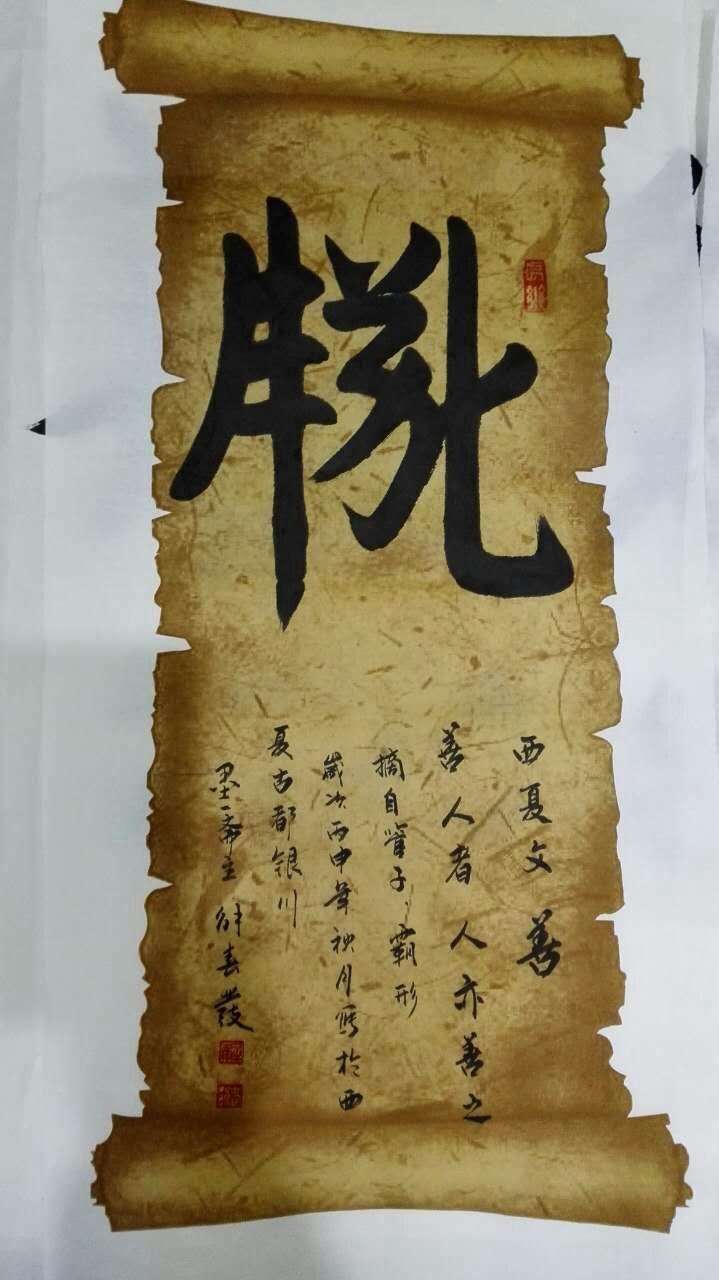 西夏文 善
善人者人亦善之
摘自管子，霸形
歲次丙申年秋月寫於西
夏古都银川
墨一斋主 春發